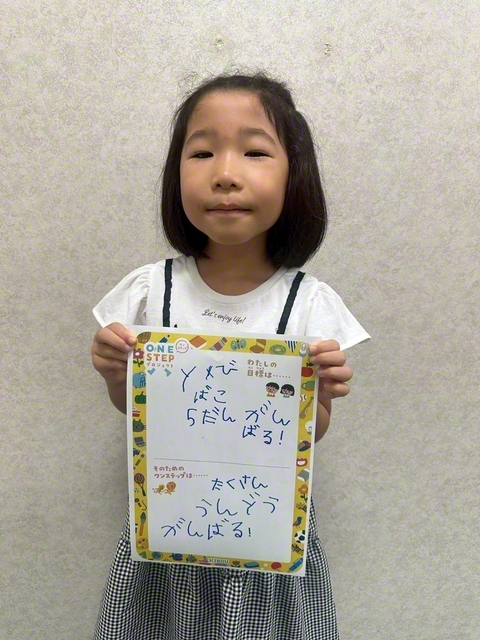 Let's enjoy life!
ONE
STEP
プロジェクト
わたしの
目標は……
とび
ばこ
5だん がん
ばる!
そのための
ワンステップは……
たくさん
うんどう
がんばる!